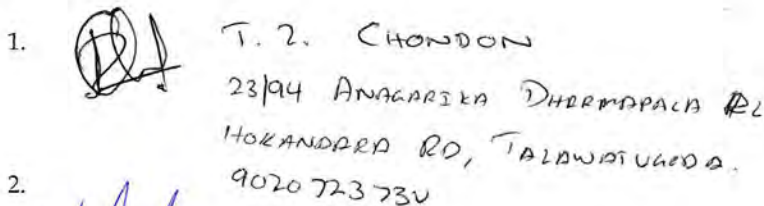 1. T. 2. CHONDON
23/94 ANAGARIKA DHARMAPALA
HOKANDARA RD, TALAWATUGODA.
2. 902072373V